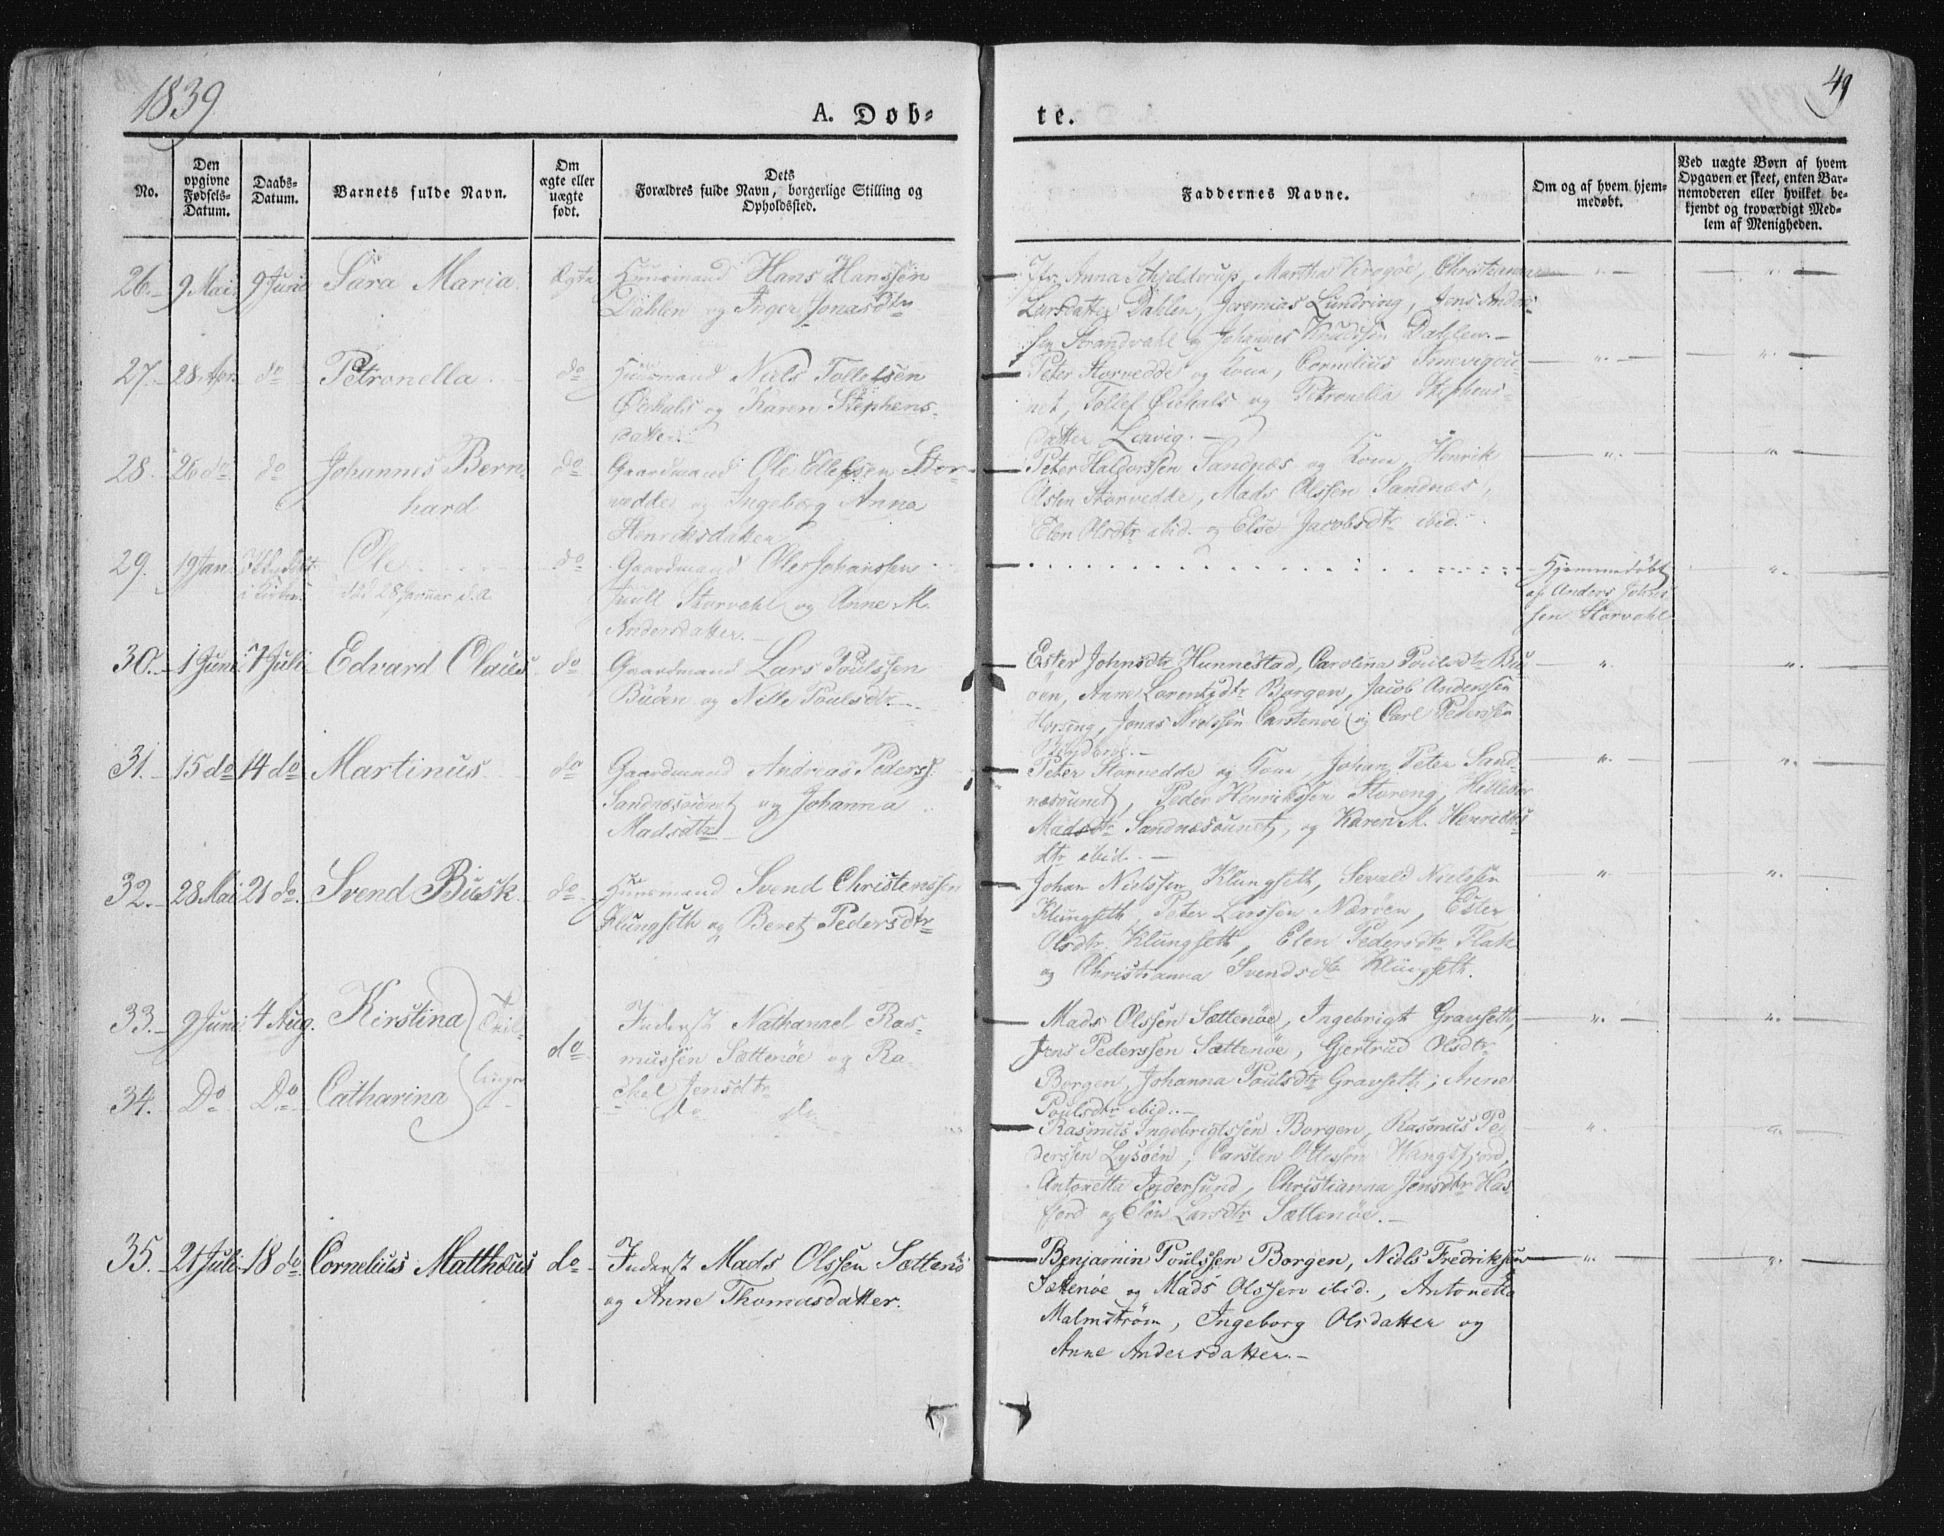 1839
49
A. Dob-
te.
No.
Den opgivne Fødsels-Datum.
Daabs-Datum.
Barnets fulde Navn.
Om ægte eller uægte født.
Dets Forældres fulde Navn, borgerlige Stilling og Opholdssted.
Faddernes Navne.
Om og af hvem hjemmedøbt.
Ved uægte Børn af hvem Opgaven er skeet, enten Barnemoderen eller hvilket bekjendt og troværdigt Medlem af Menigheden.
26. 9 Mai 9 Juni Sara Maria Ægte Huusmand Hans Hanssen
Dahlen og Inger Jonasdtr
Anna Schjelderup, Martha Krogøe, Christianna
Larsdatter Dahlen, Jeremias Lundring, Jens Ander-
sen Strandvahl og Johannes Knudssen Dahlen.
27. 28 Apr do Petronella do Huusmand Niels Tollefsen
Øiehals og Karen Stephens-
datter
Peter Storvedde og Kone, Cornelius
Tollef Øiehals og Petronella Stephens-
datter Leavig.
28. 26 do do Johannes Bern-
hard
do Gaardmand Ole Ellefsen Stor-
vedde og Ingeborg Anna
Henriksdatter
Peter Haldorssen Sandnæs og Kone, Henrik
Olsen Storvedde, Mads Olssen Sandnæs,
Elen Olsdtr ibid. og Else Jacobsdtr ibid.
29. 19 Jan Ole
død 28 Januar d.A.
do Gaardmand Ole Johanssen
Storvahl og Anne M.
Andersdatter.
Hjemmedøbt
af Anders Johns-
sen Storvahl
30. 1 Juni 7 Juli Edvard Olaus do Gaardmand Lars Poulssen
Buøen og Nille Poulsdtr.
Ester Johnsdtr Hunnestad, Carolina Poulsdtr Bu-
øen, Anne Lorentzdtr Borgen, Jacob Anderssen
Horsing, Jonas Nielssen Carstenøe og Carl Pederssen
31. 15 do 14 do Martinus do Gaardmand Andreas Peders.
Sandnæsvunet og Johanna
Madsdtr
Peter Storvedde og Kone, Johan Peter Sand-
næsvunet, Peder Henrikssen Storeng,
Madsdtr Sandnæsvunet, og Karen M. Henriks-
dtr ibid.
32. 28 Mai 21 do. Svend Busk do Huusmand Svend Christenssen
Klungseth og Beret Pedersdtr
Johan Nielssen Klungseth, Sevald Nielssen
Klungseth, Peter Larssen Nærøen, Ester
Olsdtr. Klungseth, Elen Pedersdtr Flak
og Christianna Svendsdtr Klungseth.
33. 9 Juni 4 Aug. Kirstina
Tvil-
do Inderst Nathanael Ras-
mussen Sættenøe og Ra-
chel Jensdtr
Mads Olssen Sættenøe, Ingebrigt Gravseth,
Jens Pederssen Sættenøe, Gjertrud Olsdtr
Borgen, Johanna Poulsdtr Gravseth, Anne
Poulsdtr ibid.
34. Do Do Catharina
linger
do do
Rasmus Ingebrigtssen Borgen, Rasmus Pe-
derssen Lysøen, Carsten Ottessen Wangsfjord,
Antonetta Indersund, Christianna Jensdtr Has-
fjord og Elen Larsdtr Sættenøe.
35. 21 Juli 18 do Cornelius Matthæus do Inderst Mads Olssen Sættenø
og Anne Thomasdatter.
Benjamin Poulssen Borgen, Niels Fredrikssen
Sættenøe og Mads Olssen ibid., Antonetta
Malmstrøm, Ingeborg Olsdatter og
Anne Andersdatter.